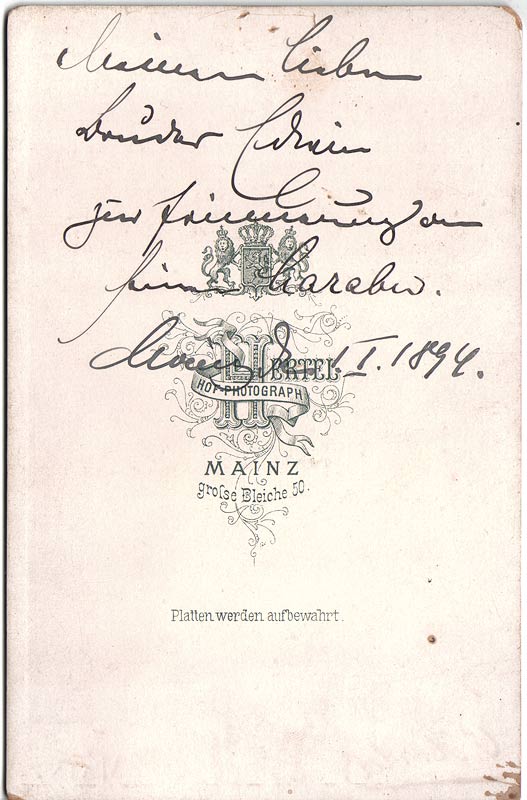 Meinem lieben
Bruder Edwin
zur Erinnerung an
seinen
Mainz, d. 1.I.1894.
HERTEL
HOF-PHOTOGRAPH
MAINZ
groſse Bleiche 50.
Platten werden aufbewahrt.